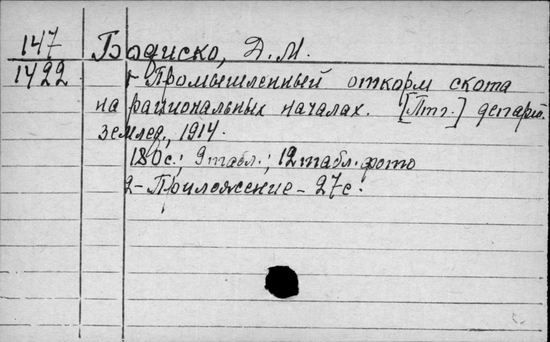 147 Бодиско, Д.М.
1422 1- Промышленный откорм скота
на рациональных началах. [Птг.] департ.
землед., 1914.
180с.; 9 табл.; 12 табл. фото
2- Приложение - 27с.